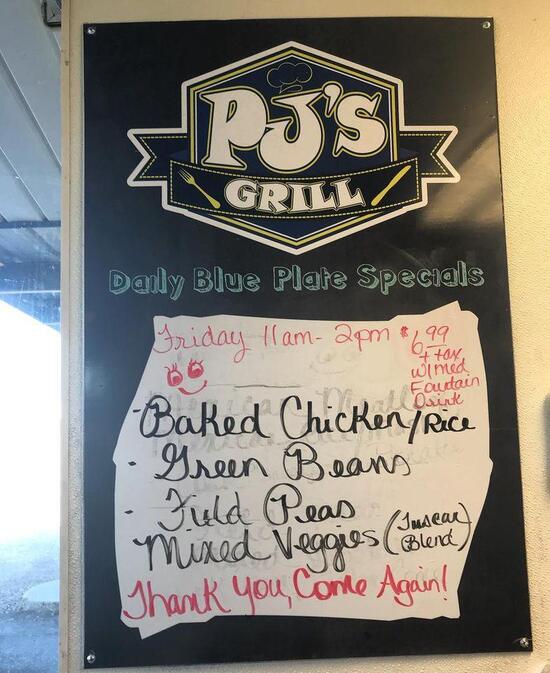 PJ'S
GRILL
Daily Blue Plate Specials
Friday 11am - 2pm $6.99
+ tax
w/med
Fountain
Drink
- Baked Chicken/Rice
- Green Beans
- Field Peas
- Mixed Veggies (Tuscan Blend)
Thank You, Come Again!